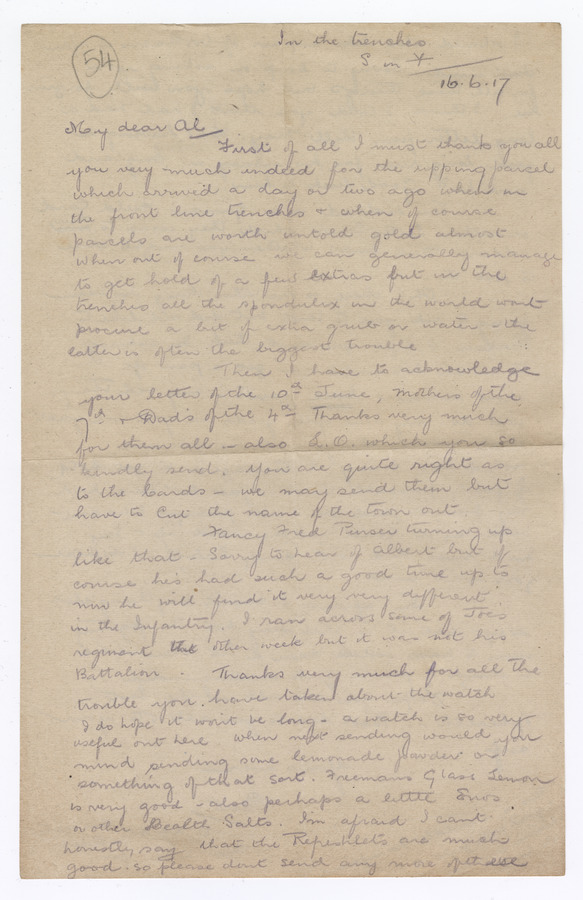 54
In the trenches
S. in X.
16.6.17
My dear Al
First of all I must thank you all
you very much indeed for the ripping parcel
which arrived a day or two ago when in
the front line trenches & when of course
parcels are worth untold gold almost
when out of course we can generally manage
to get hold of a few extras but in the
trenches all the spondulix in the world wont
procure a bit of extra grub or water - the
latter is often the biggest trouble
Then I have to acknowledge
your letter of the 10th June, Mothers of the
7th & Dad's of the 4th Thanks very much
for them all - also L.O. which you so
kindly send. You are quite right as
to the Cards - we may send them but
have to cut the name of the town out.
Fancy Fred Purser turning up
like that - Sorry to hear of Albert but of
course he's had such a good time up to
now he will find it very very different
in the Infantry. I ran across some of Joe's
regiment the other week but it was not his
Battalion. Thanks very much for all the
trouble you have taken about the watch
I do hope it wont be long - a watch is so very
useful out here when next sending would you
mind sending some lemonade powder or
something of that sort. Freemans Glass Lemon
is very good - also perhaps a little Enos
or other Health Salts. I'm afraid I cant
honestly say that the Refreshlets are much
good - so please dont send any more of these